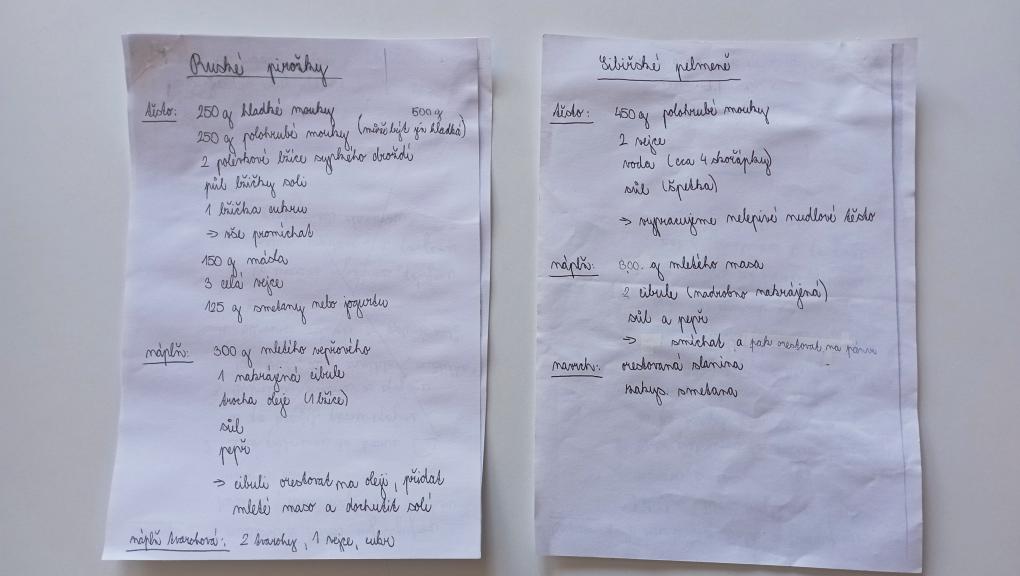 Ruské pirožky
těsto: 250 g hladké mouky 500 g
250 g polohrubé mouky (může být jen hladká)
2 polévkové lžíce sypkého droždí
půl lžičky soli
1 lžička cukru
⇒ vše promíchat
150 g másla
3 celá vejce
125 g smetany nebo jogurtu
náplň: 300 g mletého vepřového
1 nakrájená cibule
trocha oleje (1 lžíce)
sůl
pepř
⇒ cibuli orestovat na oleji, přidat
mleté maso a dochutit solí
náplň tvarohová: 2 tvarohy, 1 vejce, cukr
Sibiřské pelmeně
těsto: 450 g polohrubé mouky
2 vejce
voda (cca 4 skořápky)
sůl (špetka)
⇒ vypracujeme nelepivé nudlové těsto
náplň: 300 g mletého masa
2 cibule (nadrobno nakrájená)
sůl a pepř
⇒ smíchat a pak orestovat na pánvi
navrch: orestovaná slanina
zakys. smetana